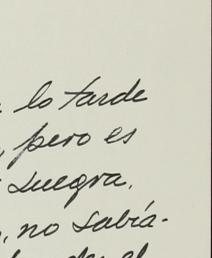 lo tarde
, pero es
suegra.
, no sabía-